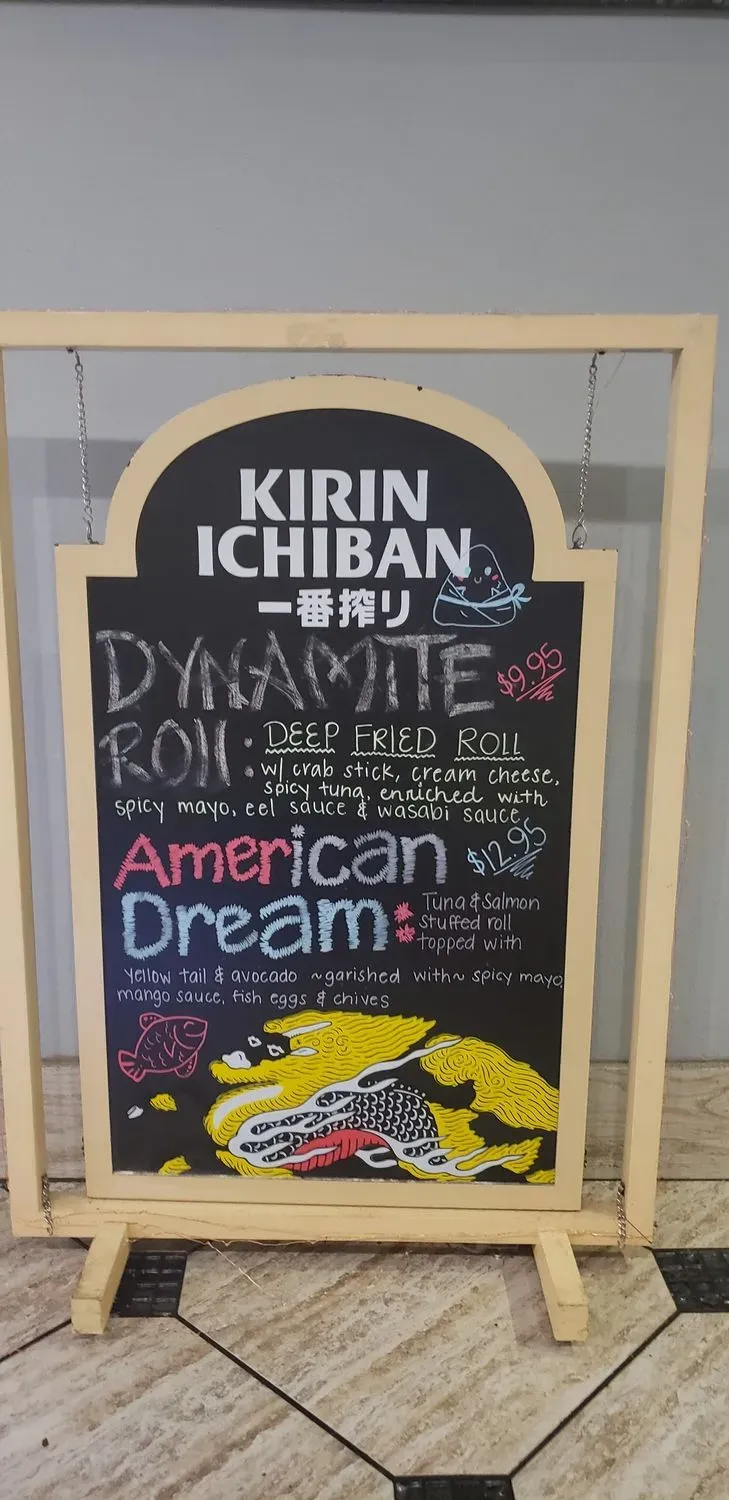 KIRIN
ICHIBAN
一番搾り
DYNAMITE $9.95
ROll: DEEP FRIED ROLL
w/ crab stick, cream cheese,
spicy tuna, enriched with
spicy mayo, eel sauce & wasabi sauce
American $12.95
Dream: Tuna & Salmon
Stuffed roll
topped with
yellow tail & avocado ~garished with~ spicy mayo,
mango sauce, fish eggs & chives